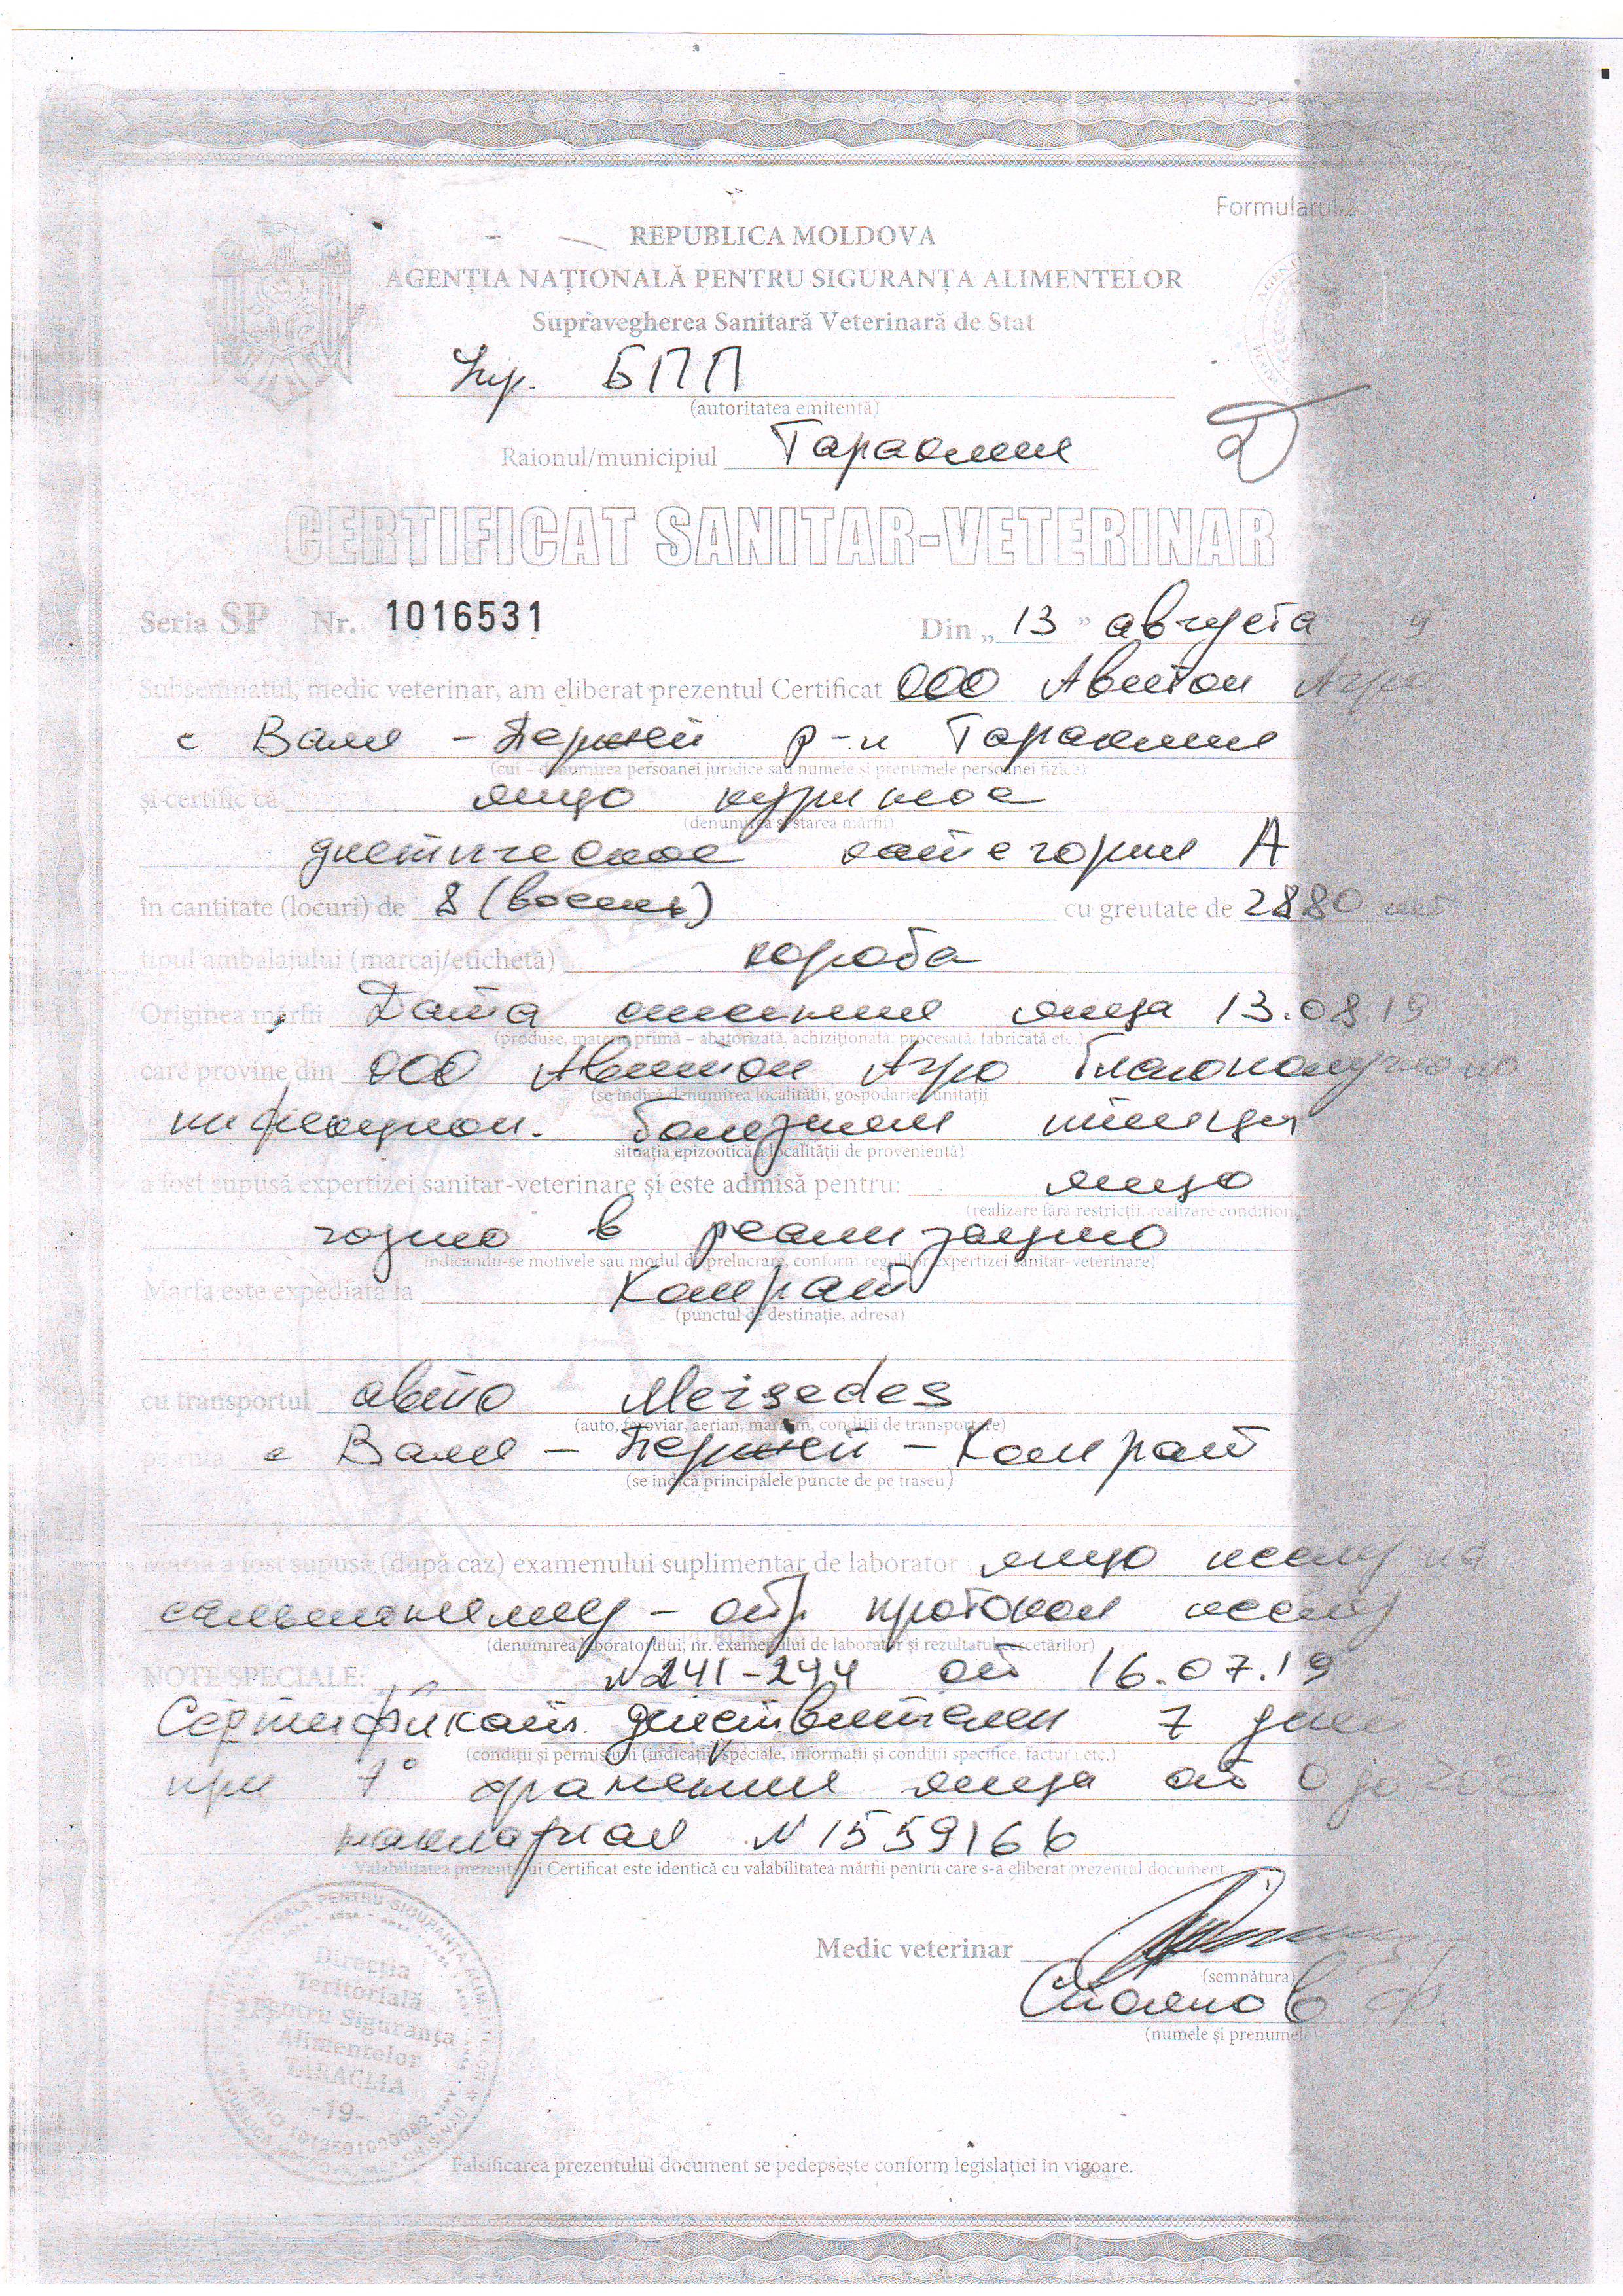 Formularul 2
REPUBLICA MOLDOVA
AGENȚIA NAȚIONALĂ PENTRU SIGURANȚA ALIMENTELOR
Supravegherea Sanitară Veterinară de Stat
БПП
(autoritatea emitentă)
Raionul/municipiul Тараклия
CERTIFICAT SANITAR-VETERINAR
Seria SP Nr. 1016531 Din „ 13 ” августа 9
Subsemnatul, medic veterinar, am eliberat prezentul Certificat ООО Авитон Агро
с Валя - Пержей р-н Тараклия
(cui – denumirea persoanei juridice sau numele și prenumele persoanei fizice)
și certific că яйцо куриное
(denumirea și starea mărfii)
диетическое категории А
în cantitate (locuri) de 8 (восемь) cu greutate de 2880 шт
tipul ambalajului (marcaj/etichetă) короба
Originea mărfii Дата снесения яйца 13.08 19
(produse, materie primă – abatorizată, achiziționată, procesată, fabricată etc.)
care provine din ООО Авитон Агро благополучно по
(se indică denumirea localității, gospodăriei, unității
инфекцион. болезням птицы
situația epizootică a localității de proveniență)
a fost supusă expertizei sanitar-veterinare și este admisă pentru: яйцо
(realizare fără restricții, realizare condiționată
годно в реализацию
indicându-se motivele sau modul de prelucrare, conform regulilor expertizei sanitar-veterinare)
Marfa este expediată la Комрат
(punctul de destinație, adresa)
cu transportul авто Mersedes
(auto, feroviar, aerian, maritim, condiții de transportare)
pe ruta с Валя - Пержей - Комрат
(se indică principalele puncte de pe traseu)
Marfa a fost supusă (după caz) examenului suplimentar de laborator яйцо исслед на
сальмонеллез - отр протокол исслед
(denumirea laboratorului, nr. examenului de laborator și rezultatul cercetărilor)
NOTE SPECIALE: N 241-244 от 16.07.19
Сертификат действителен 7 дней
(condiții și permisiuni (indicații) speciale, informații și condiții specifice, facturi etc.)
при хранения яйца от 0 до 20°С
накладная N 1559166
Valabilitatea prezentului Certificat este identică cu valabilitatea mărfii pentru care s-a eliberat prezentul document
Medic veterinar
(semnătura)
Стоянов
(numele și prenumele)
Direcția
Teritorială
Pentru Siguranța
Alimentelor
TARACLIA
-19-
Falsificarea prezentului document se pedepsește conform legislației în vigoare.